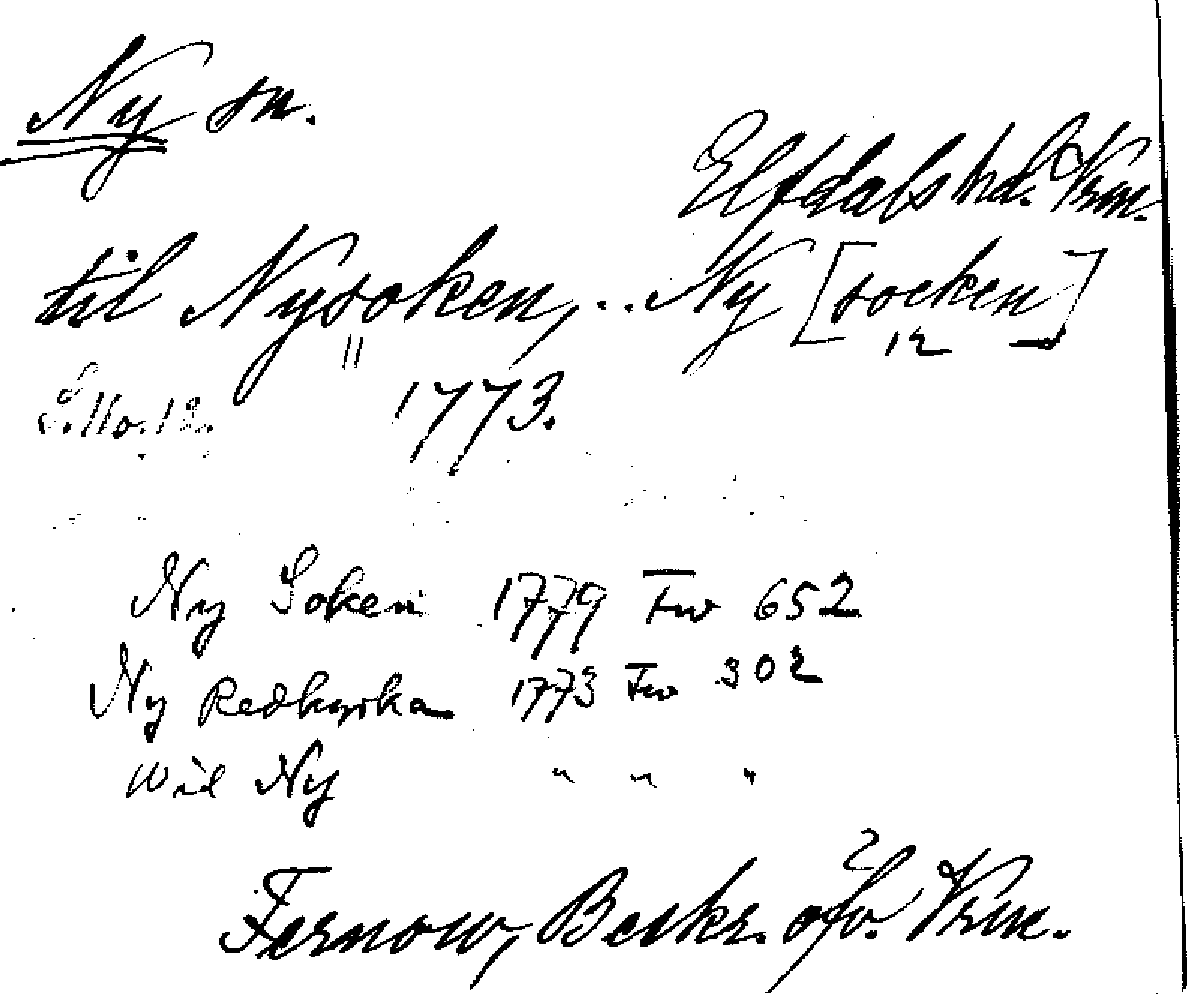 Ny sn.
Elfdals hd. Vrm.
til Nysoken, .. Ny [socken]
11 12
S. 11 o. 12. 1773.
Ny Soken 1779 Fw 652
Ny Redkyrka 1773 Fw 302
wid Ny " " "
Fernow, Beskr. öfv. Vrm.